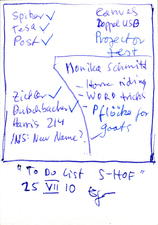 Spitzer ✓
Tesa ✓
Post ✓
Canvas
Doppel USB
Projector
test
Monika Schmitt
- Horse riding
- WORD tricks
- Pflöcke for
goats
Zicker ✓
Dutschbacher ✓
Harris 214
INS: New Name?
"To Do List S-HOF"
25 VII 10